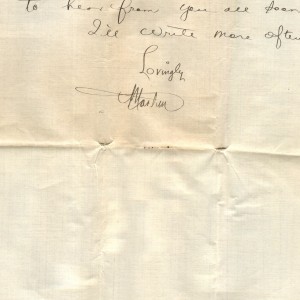 to hear from you all soon
I'll write more often
Lovingly